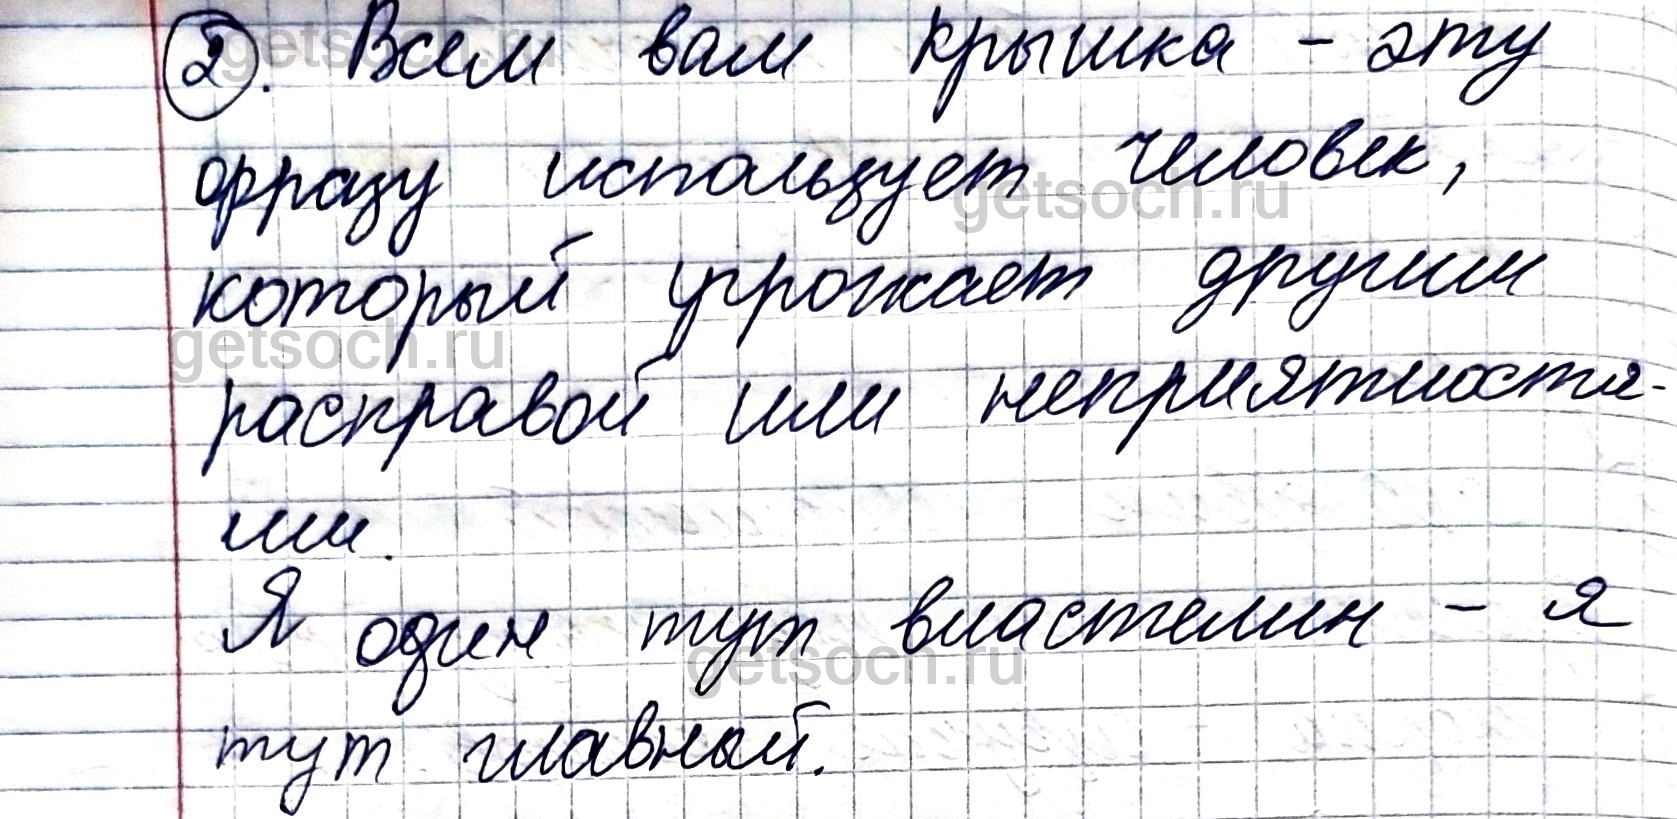 2. Всем вам крышка - эту
фразу использует человек,
который угрожает другим
расправой или неприятностя-
ми.
Я один тут властелин - я
тут главный.
getsoch.ru
getsoch.ru
getsoch.ru
getsoch.ru